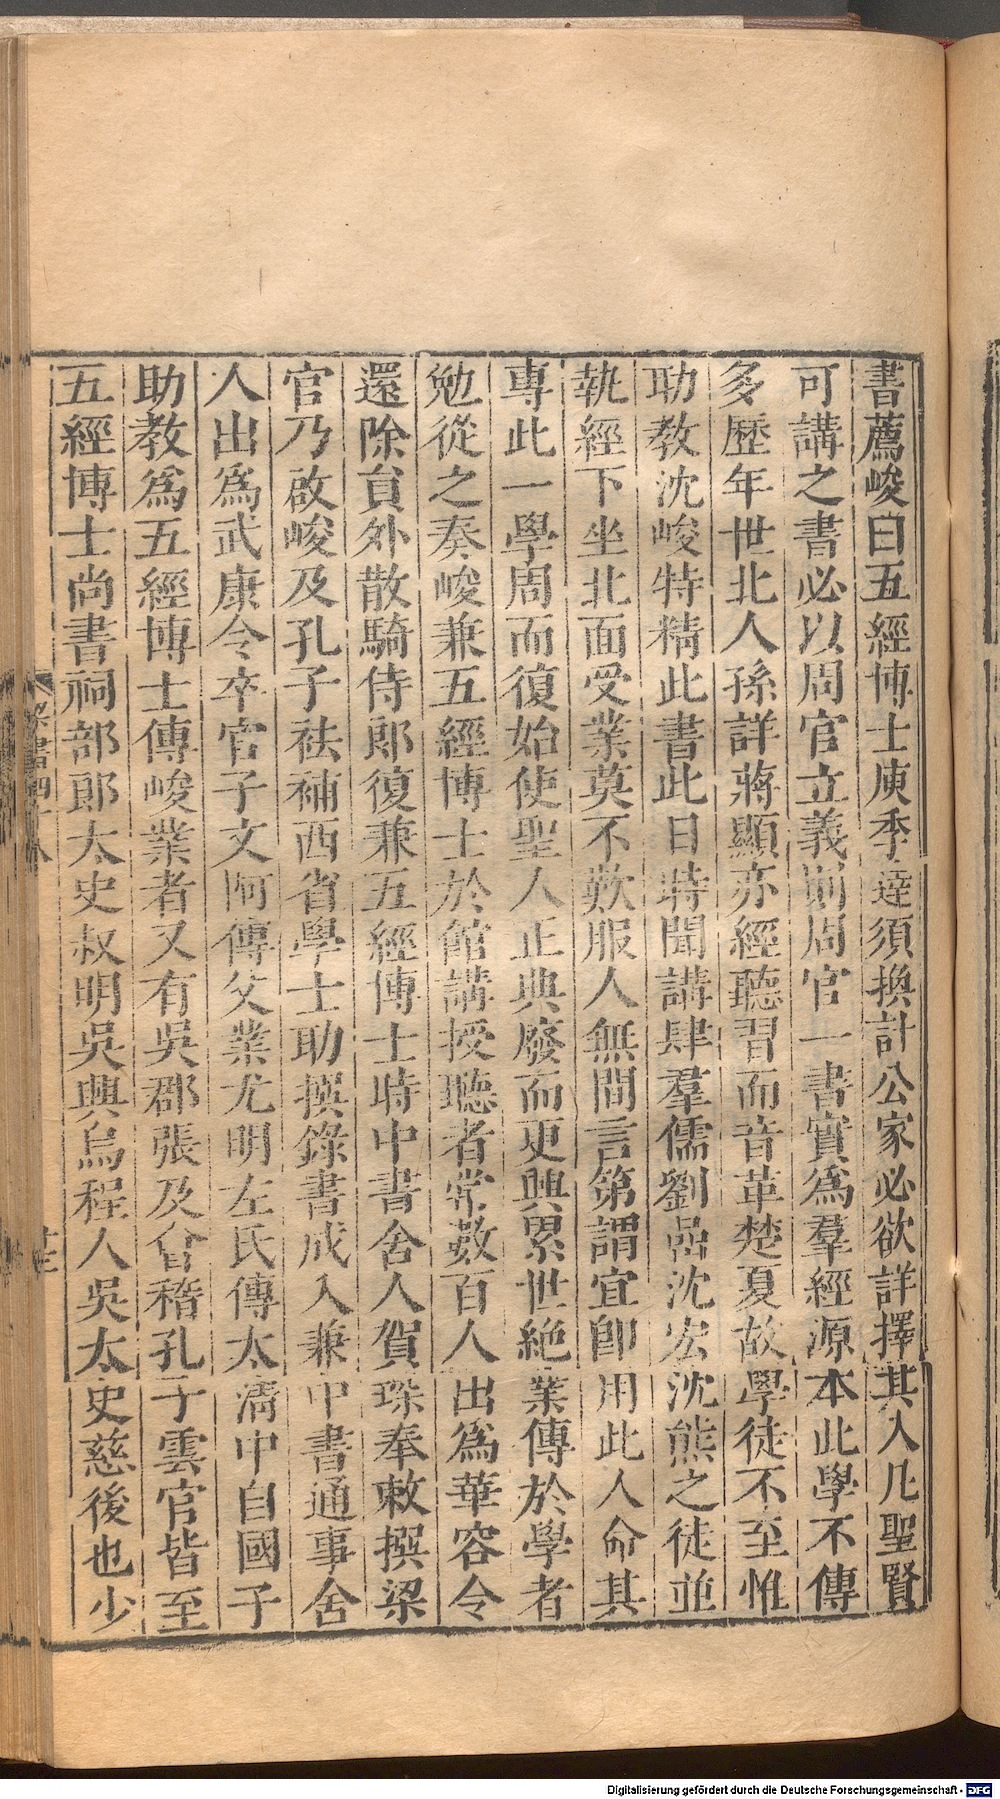 書薦峻曰五經博士庾季達須換計公家必欲詳擇其人凡聖賢
可講之書必以周官立義則周官一書實爲羣經源本此學不傳
多歷年世北人孫詳蔣顯亦經聽習而音革楚夏故學徒不至惟
助教沈峻特精此書比日時聞講肆羣儒劉嵒沈宏沈熊之徒並
執經下坐北面受業莫不歎服人無間言第謂宜卽用此人命其
專此一學周而復始使聖人正典廢而更興累世絶業傳於學者
勉從之奏峻兼五經博士於館講授聽者常數百人出爲華容令
還除貟外散騎侍郎復兼五經博士時中書舍人賀琛奉敕撰梁
官乃啟峻及孔子袪補西省學士助撰錄書成入兼中書通事舍
人出爲武康令卒官子文阿傳父業尤明左氏傳太淸中自國子
助教爲五經博士傳峻業者又有吳郡張及會稽孔子雲官皆至
五經博士尚書祠部郎太史叔明吳興烏程人吳太史慈後也少
梁書四十八
Digitalisierung gefördert durch die Deutsche Forschungsgemeinschaft - DFG